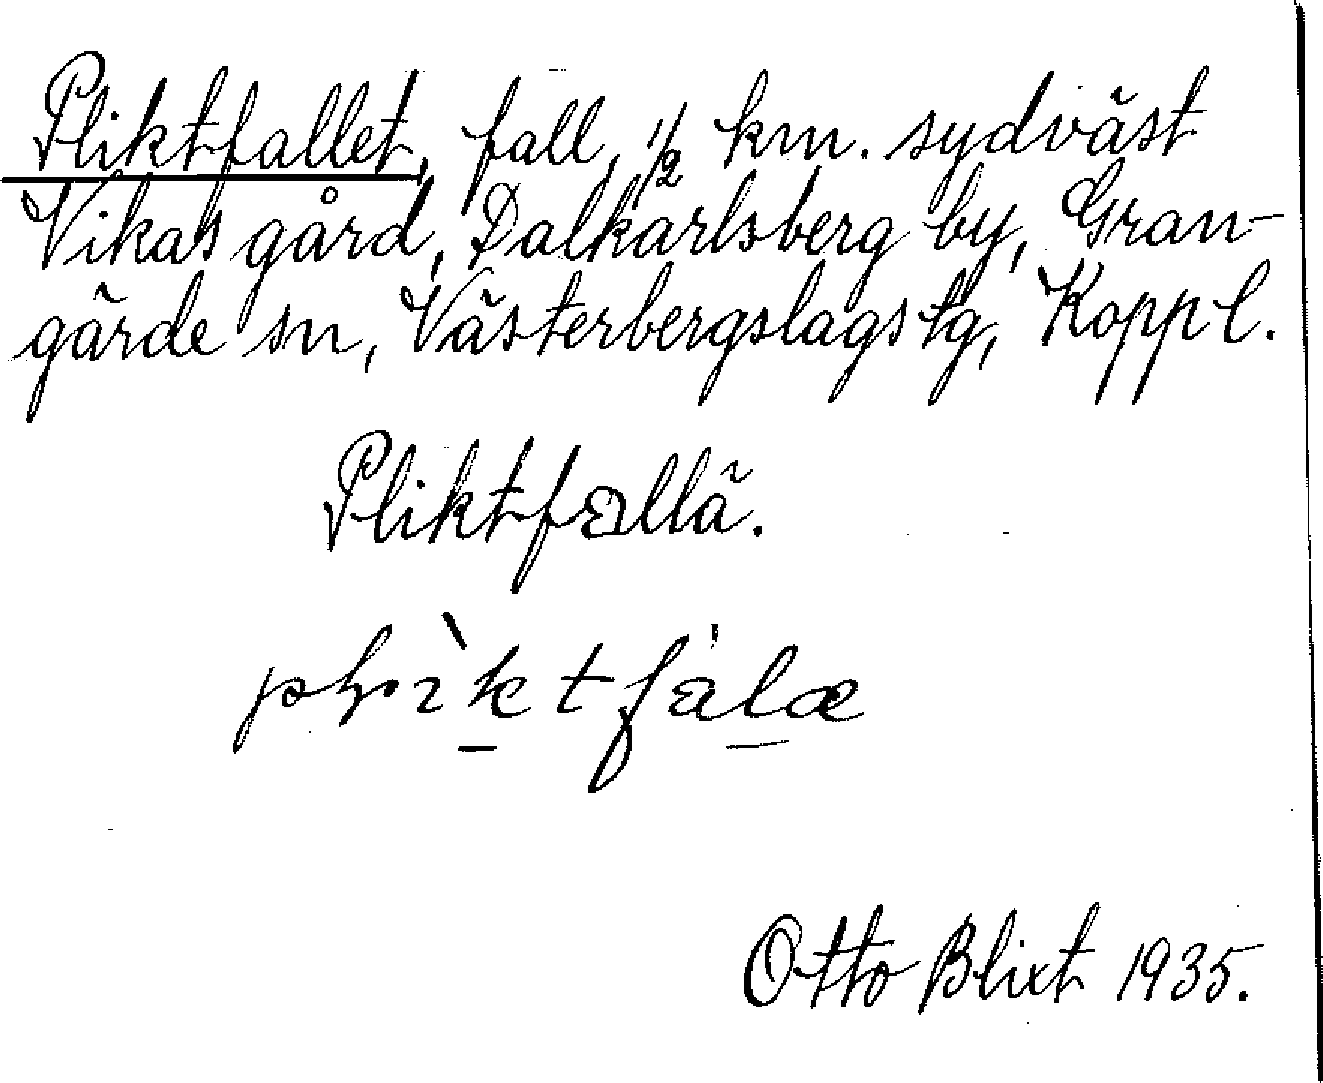 Pliktfallet, fall, 1/2 km. sydväst
Vikas gård, Dalkarlsberg by, Gran-
gärde sn, Västerbergslags tg, Kopp l.
Pliktfallä.
Otto Blixt 1935.